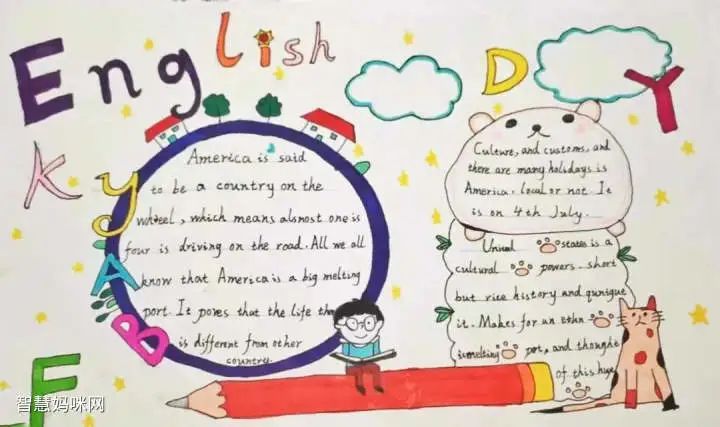 English
D
Y
K
y
A
B
F
America is said
to be a country on the
wheel, which means alsnost one is
four is driving on the road. All we all
know that America is a big melting
port. It poves that the life
is different from other
country.
Culture, and customs, and
there are many holidays is
America. local or not It
is on 4th July.
states is a
cultural powers. short
but rice history and qunique
it. Makes for an
melting pot, and thought
of this huge
智慧妈咪网